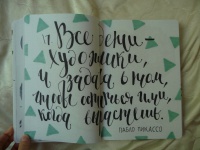 Все дети —
художники,
и задача в том,
чтобы остаться ими,
когда вырастешь.
ПАБЛО ПИКАССО